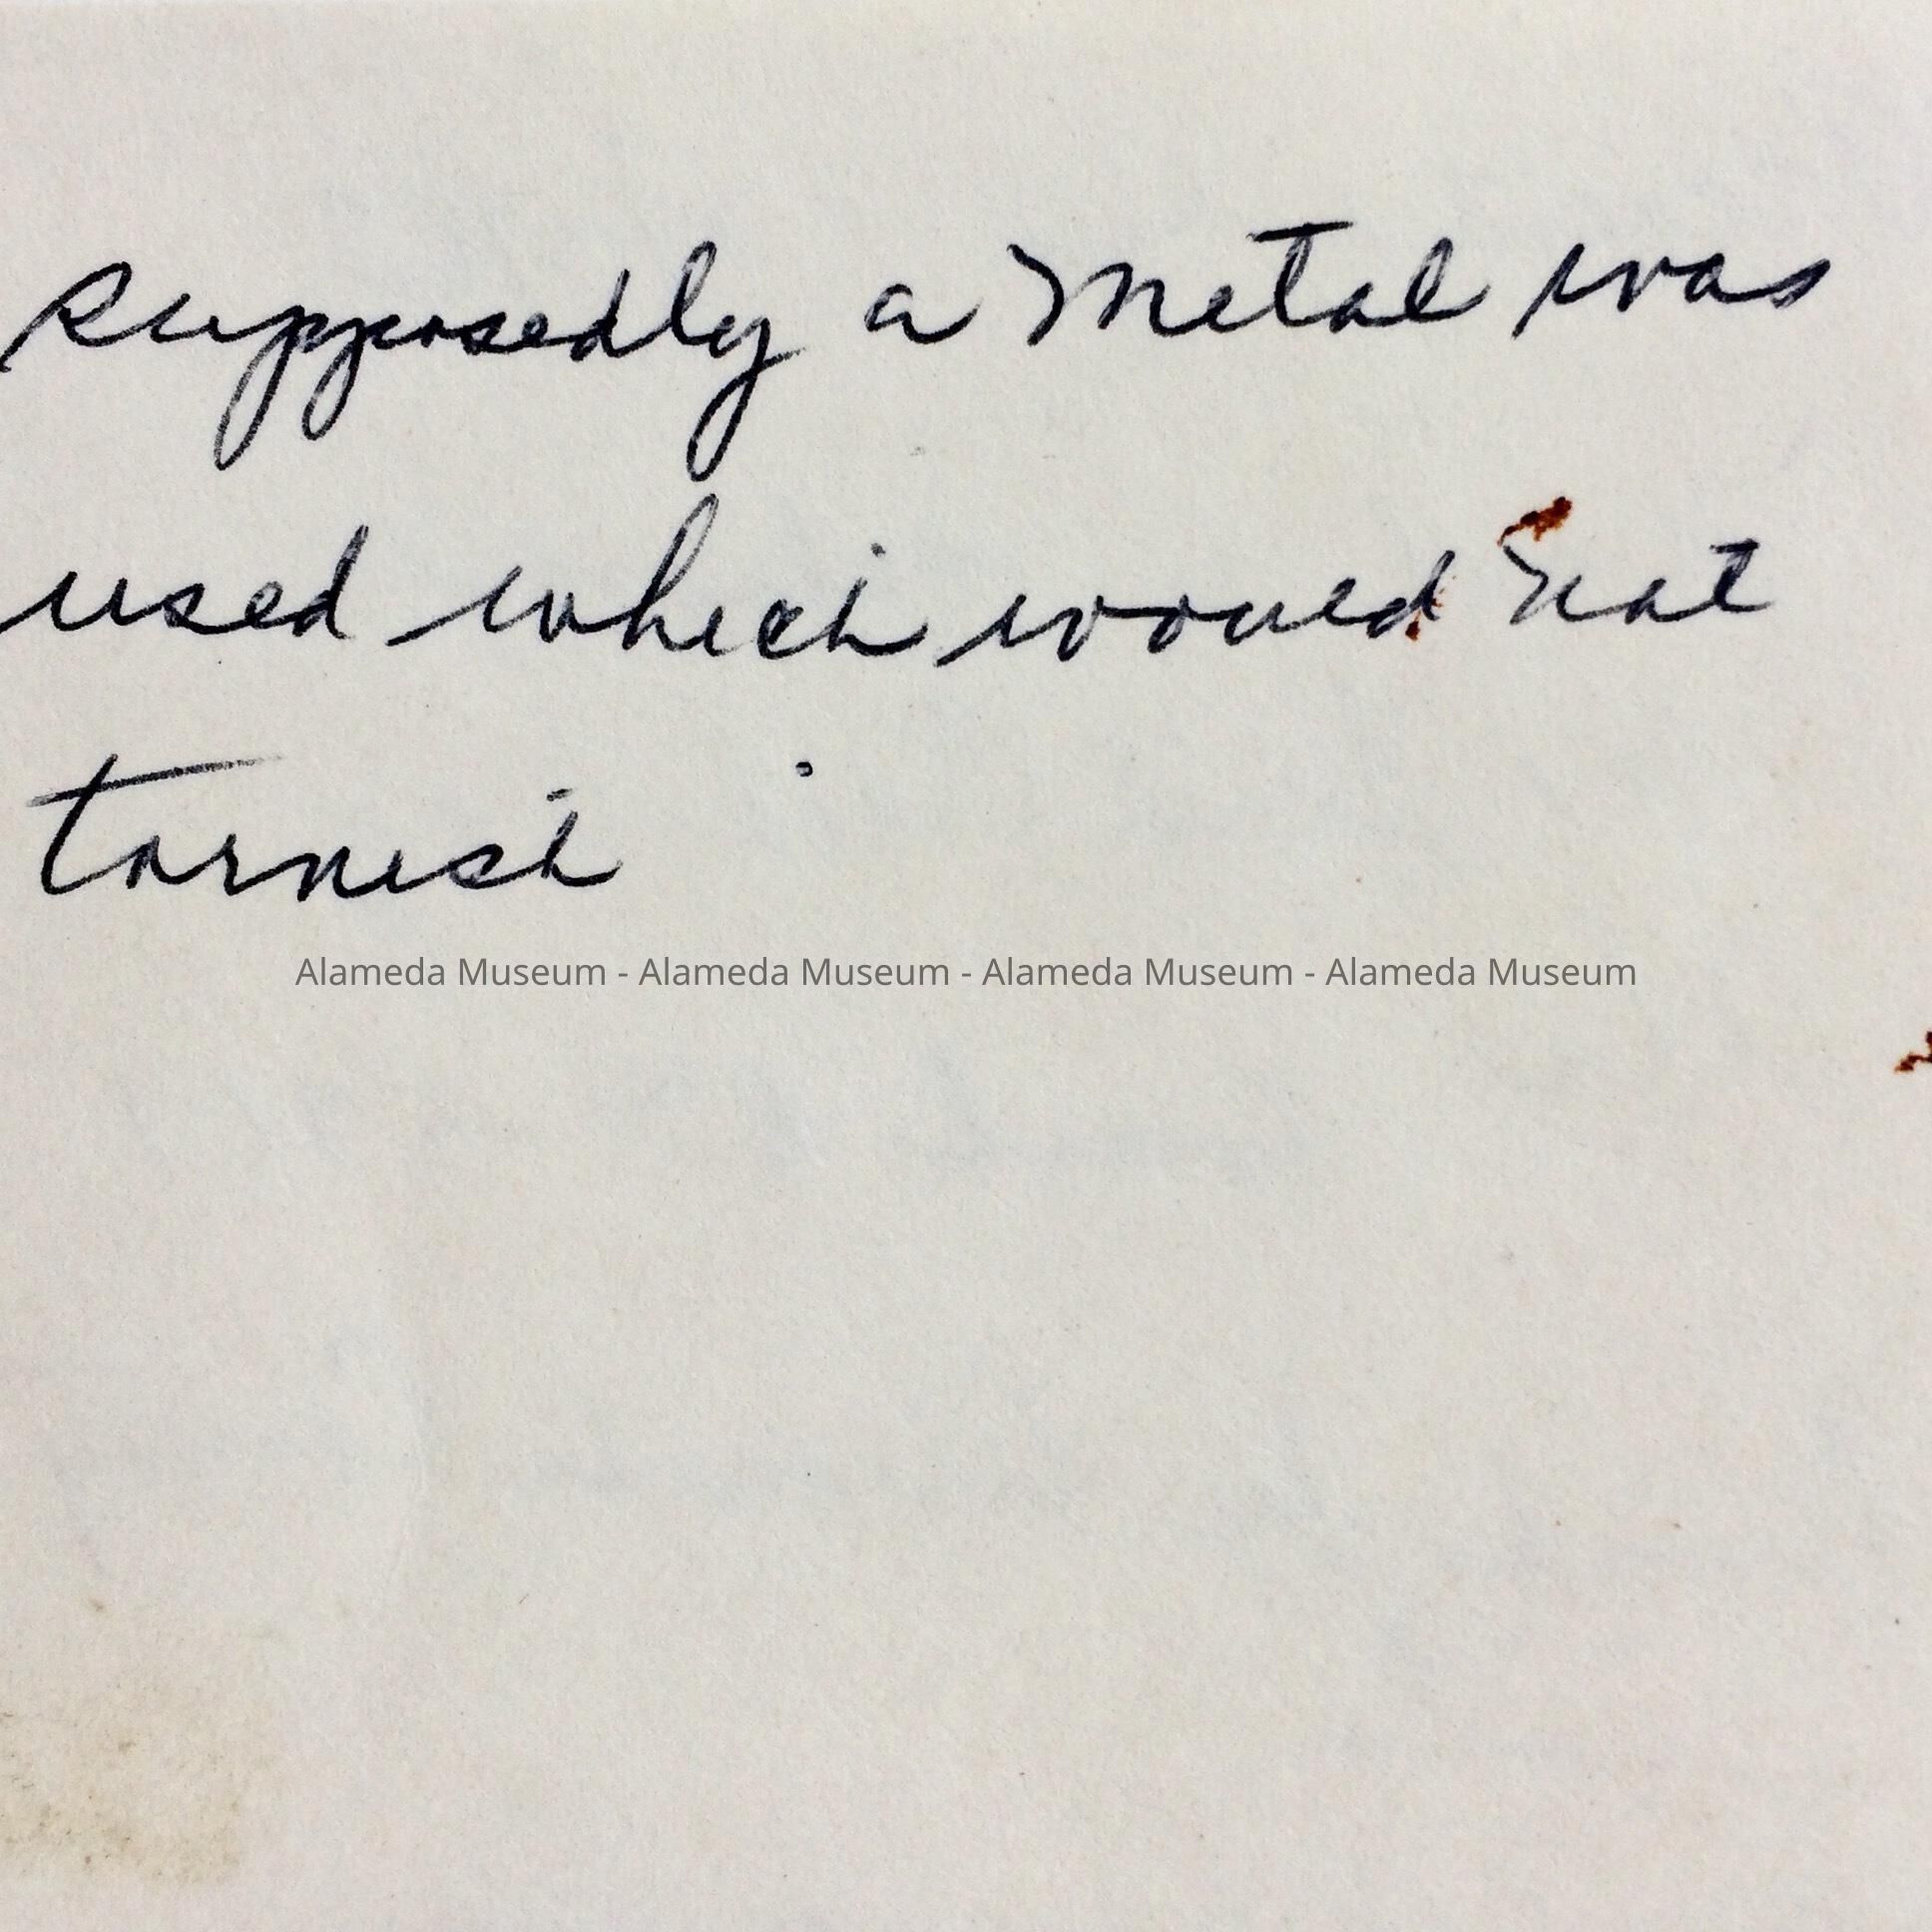 supposedly a metal was
used which would not
tarnish
Alameda Museum - Alameda Museum - Alameda Museum - Alameda Museum